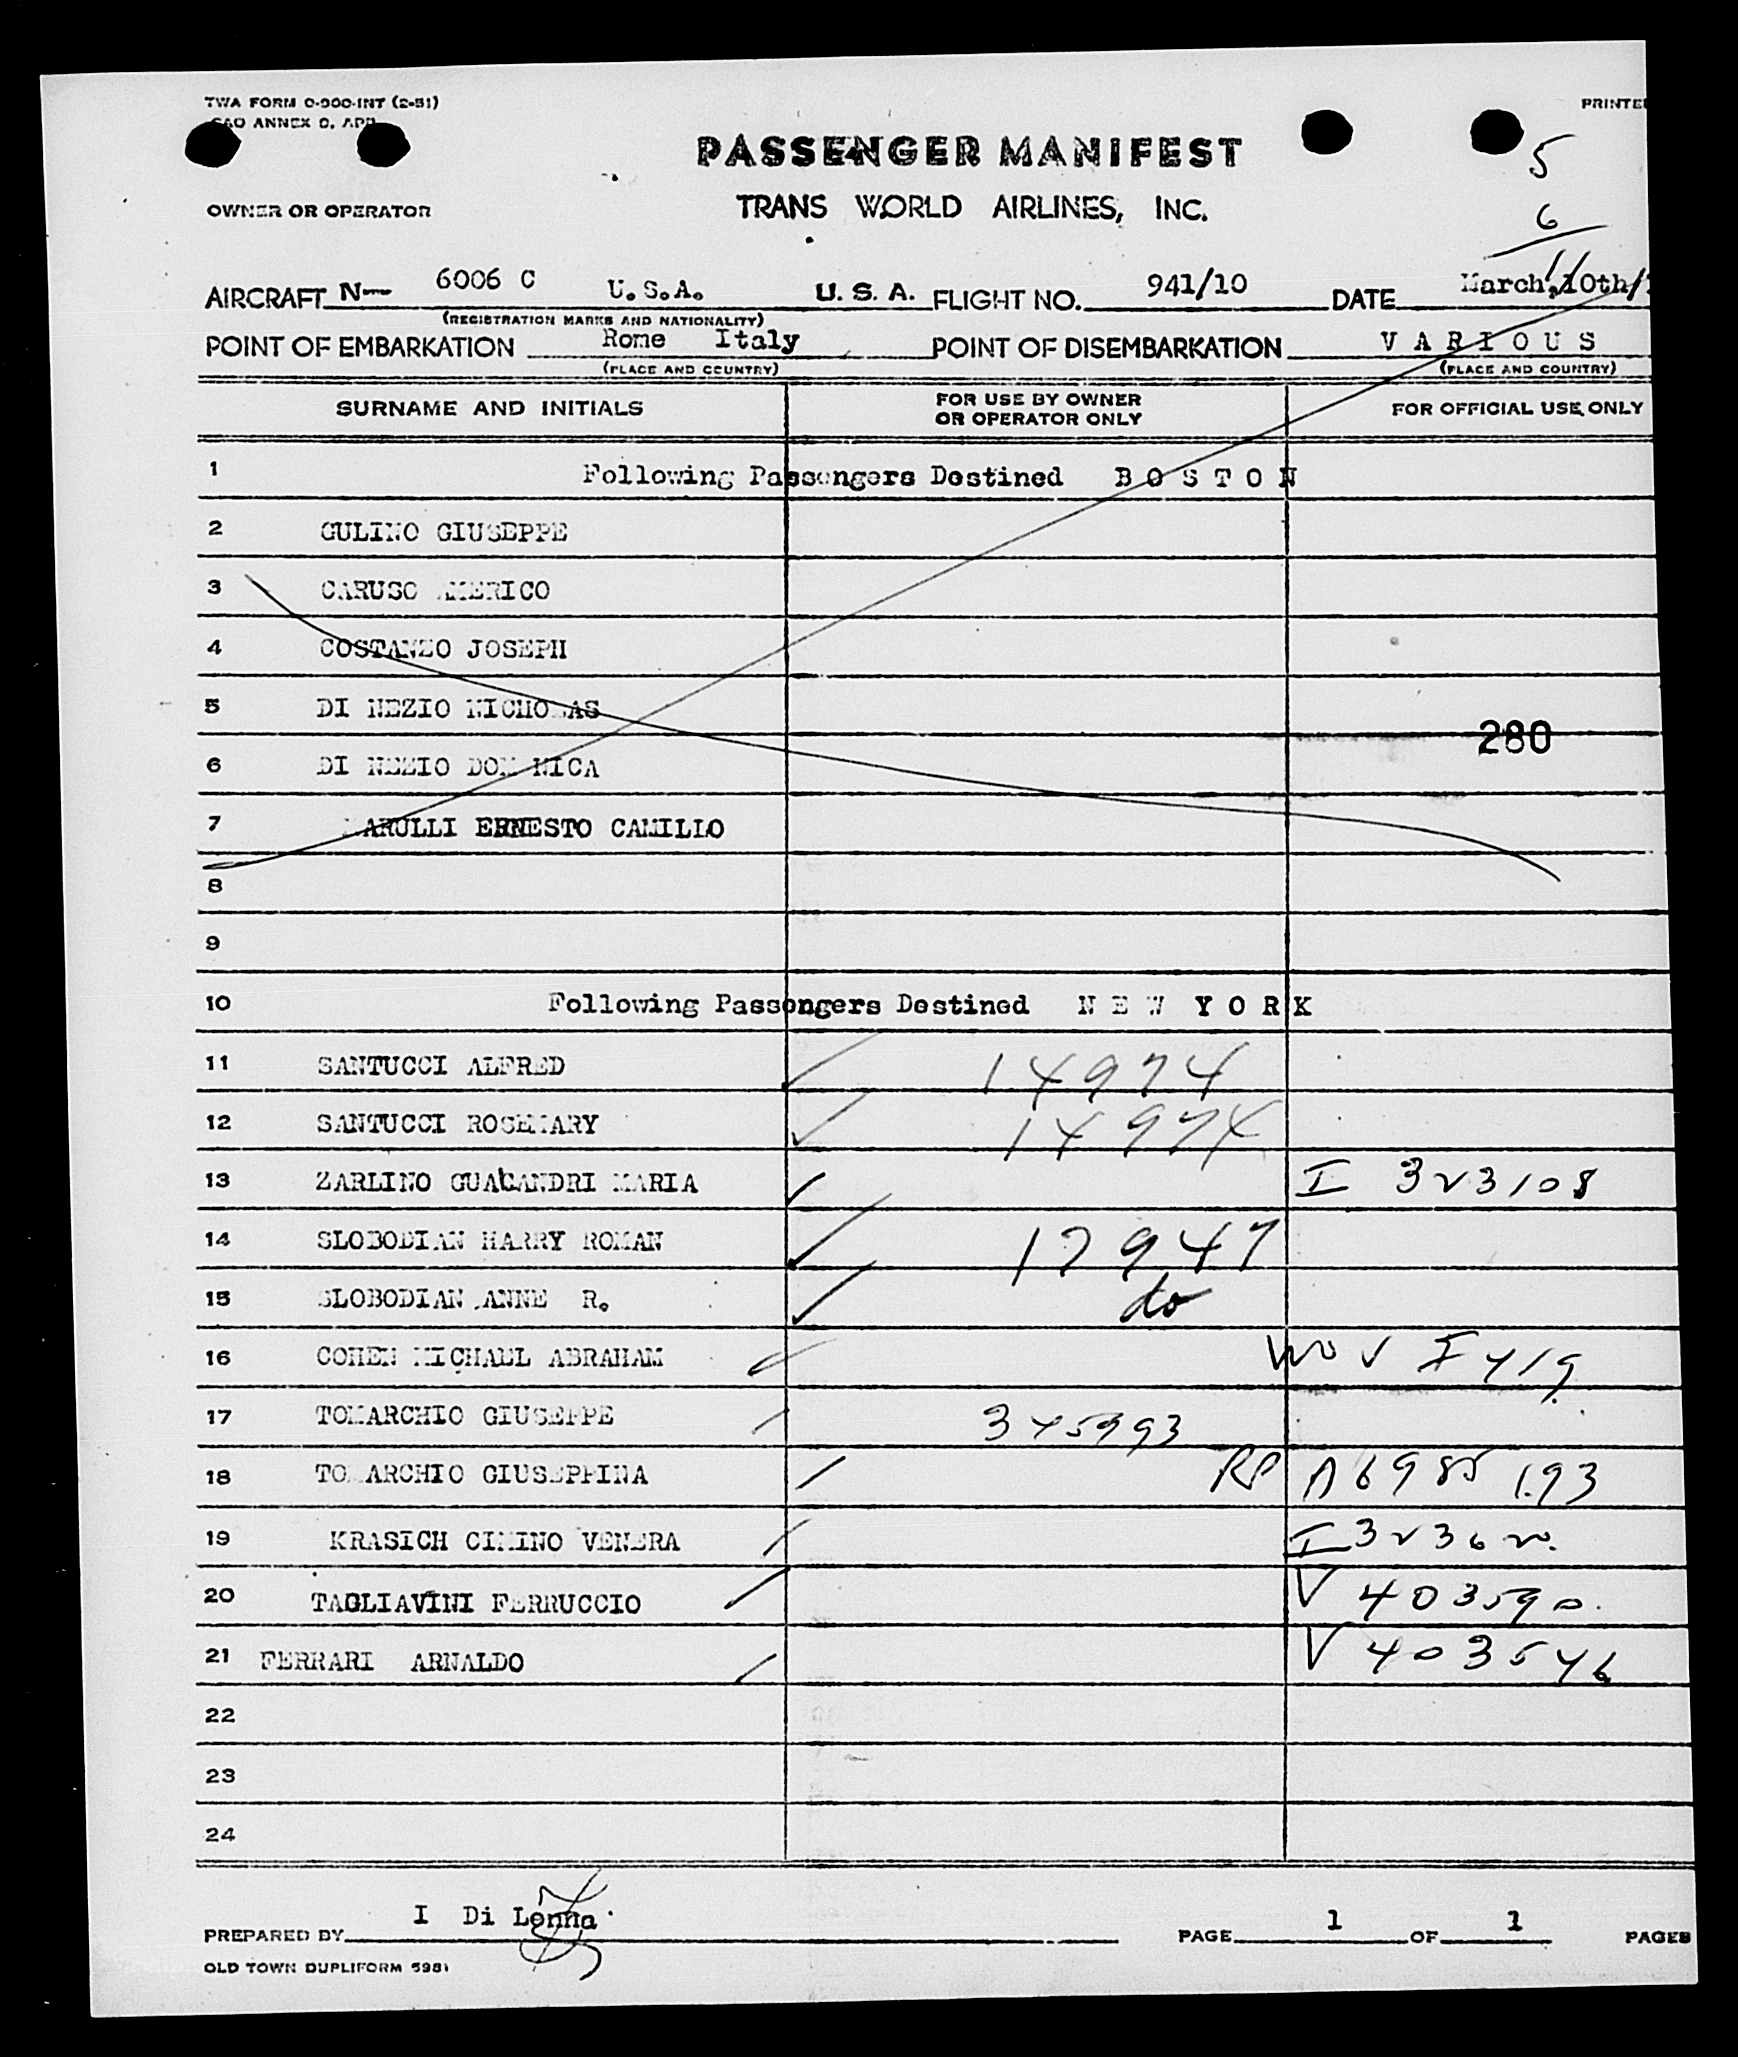 TWA FORM O-900-INT (2-51)
PRINTED
ANNEX 9, APP
PASSENGER MANIFEST
5
OWNER OR OPERATOR
TRANS WORLD AIRLINES, INC.
6
11
AIRCRAFT N— 6006 C U.S.A. U. S. A. FLIGHT NO. 941/10 DATE March,10th/
(REGISTRATION MARKS AND NATIONALITY)
POINT OF EMBARKATION Rome Italy POINT OF DISEMBARKATION V A R I O U S
(PLACE AND COUNTRY) (PLACE AND COUNTRY)
SURNAME AND INITIALS FOR USE BY OWNER OR OPERATOR ONLY FOR OFFICIAL USE ONLY
1 Following Passengers Destined B O S T O N
2 GULINO GIUSEPPE
3 CARUSO AMERICO
4 COSTANZO JOSEPH
5 DI NEZIO NICHOLAS
280
6 DI NEZIO DOMENICA
7 ARULLI ERNESTO CAMILLO
8
9
10 Following Passengers Destined N E W Y O R K
11 SANTUCCI ALFRED 14974
12 SANTUCCI ROSEMARY 14974
13 ZARLINO GUALANDRI MARIA I 323108
14 SLOBODIAN HARRY ROMAN 17947
15 SLOBODIAN ANNE R. do
16 COHEN MICHAEL ABRAHAM
17 TOMARCHIO GIUSEPPE 345993
18 TOMARCHIO GIUSEPPINA RP A6985 193
19 KRASICH CIMINO VENERA I 32362
20 TAGLIAVINI FERRUCCIO V 403590
21 FERRARI ARNALDO V 403546
22
23
24
PREPARED BY I Di Lenna PAGE 1 OF 1 PAGES
OLD TOWN DUPLIFORM 5981